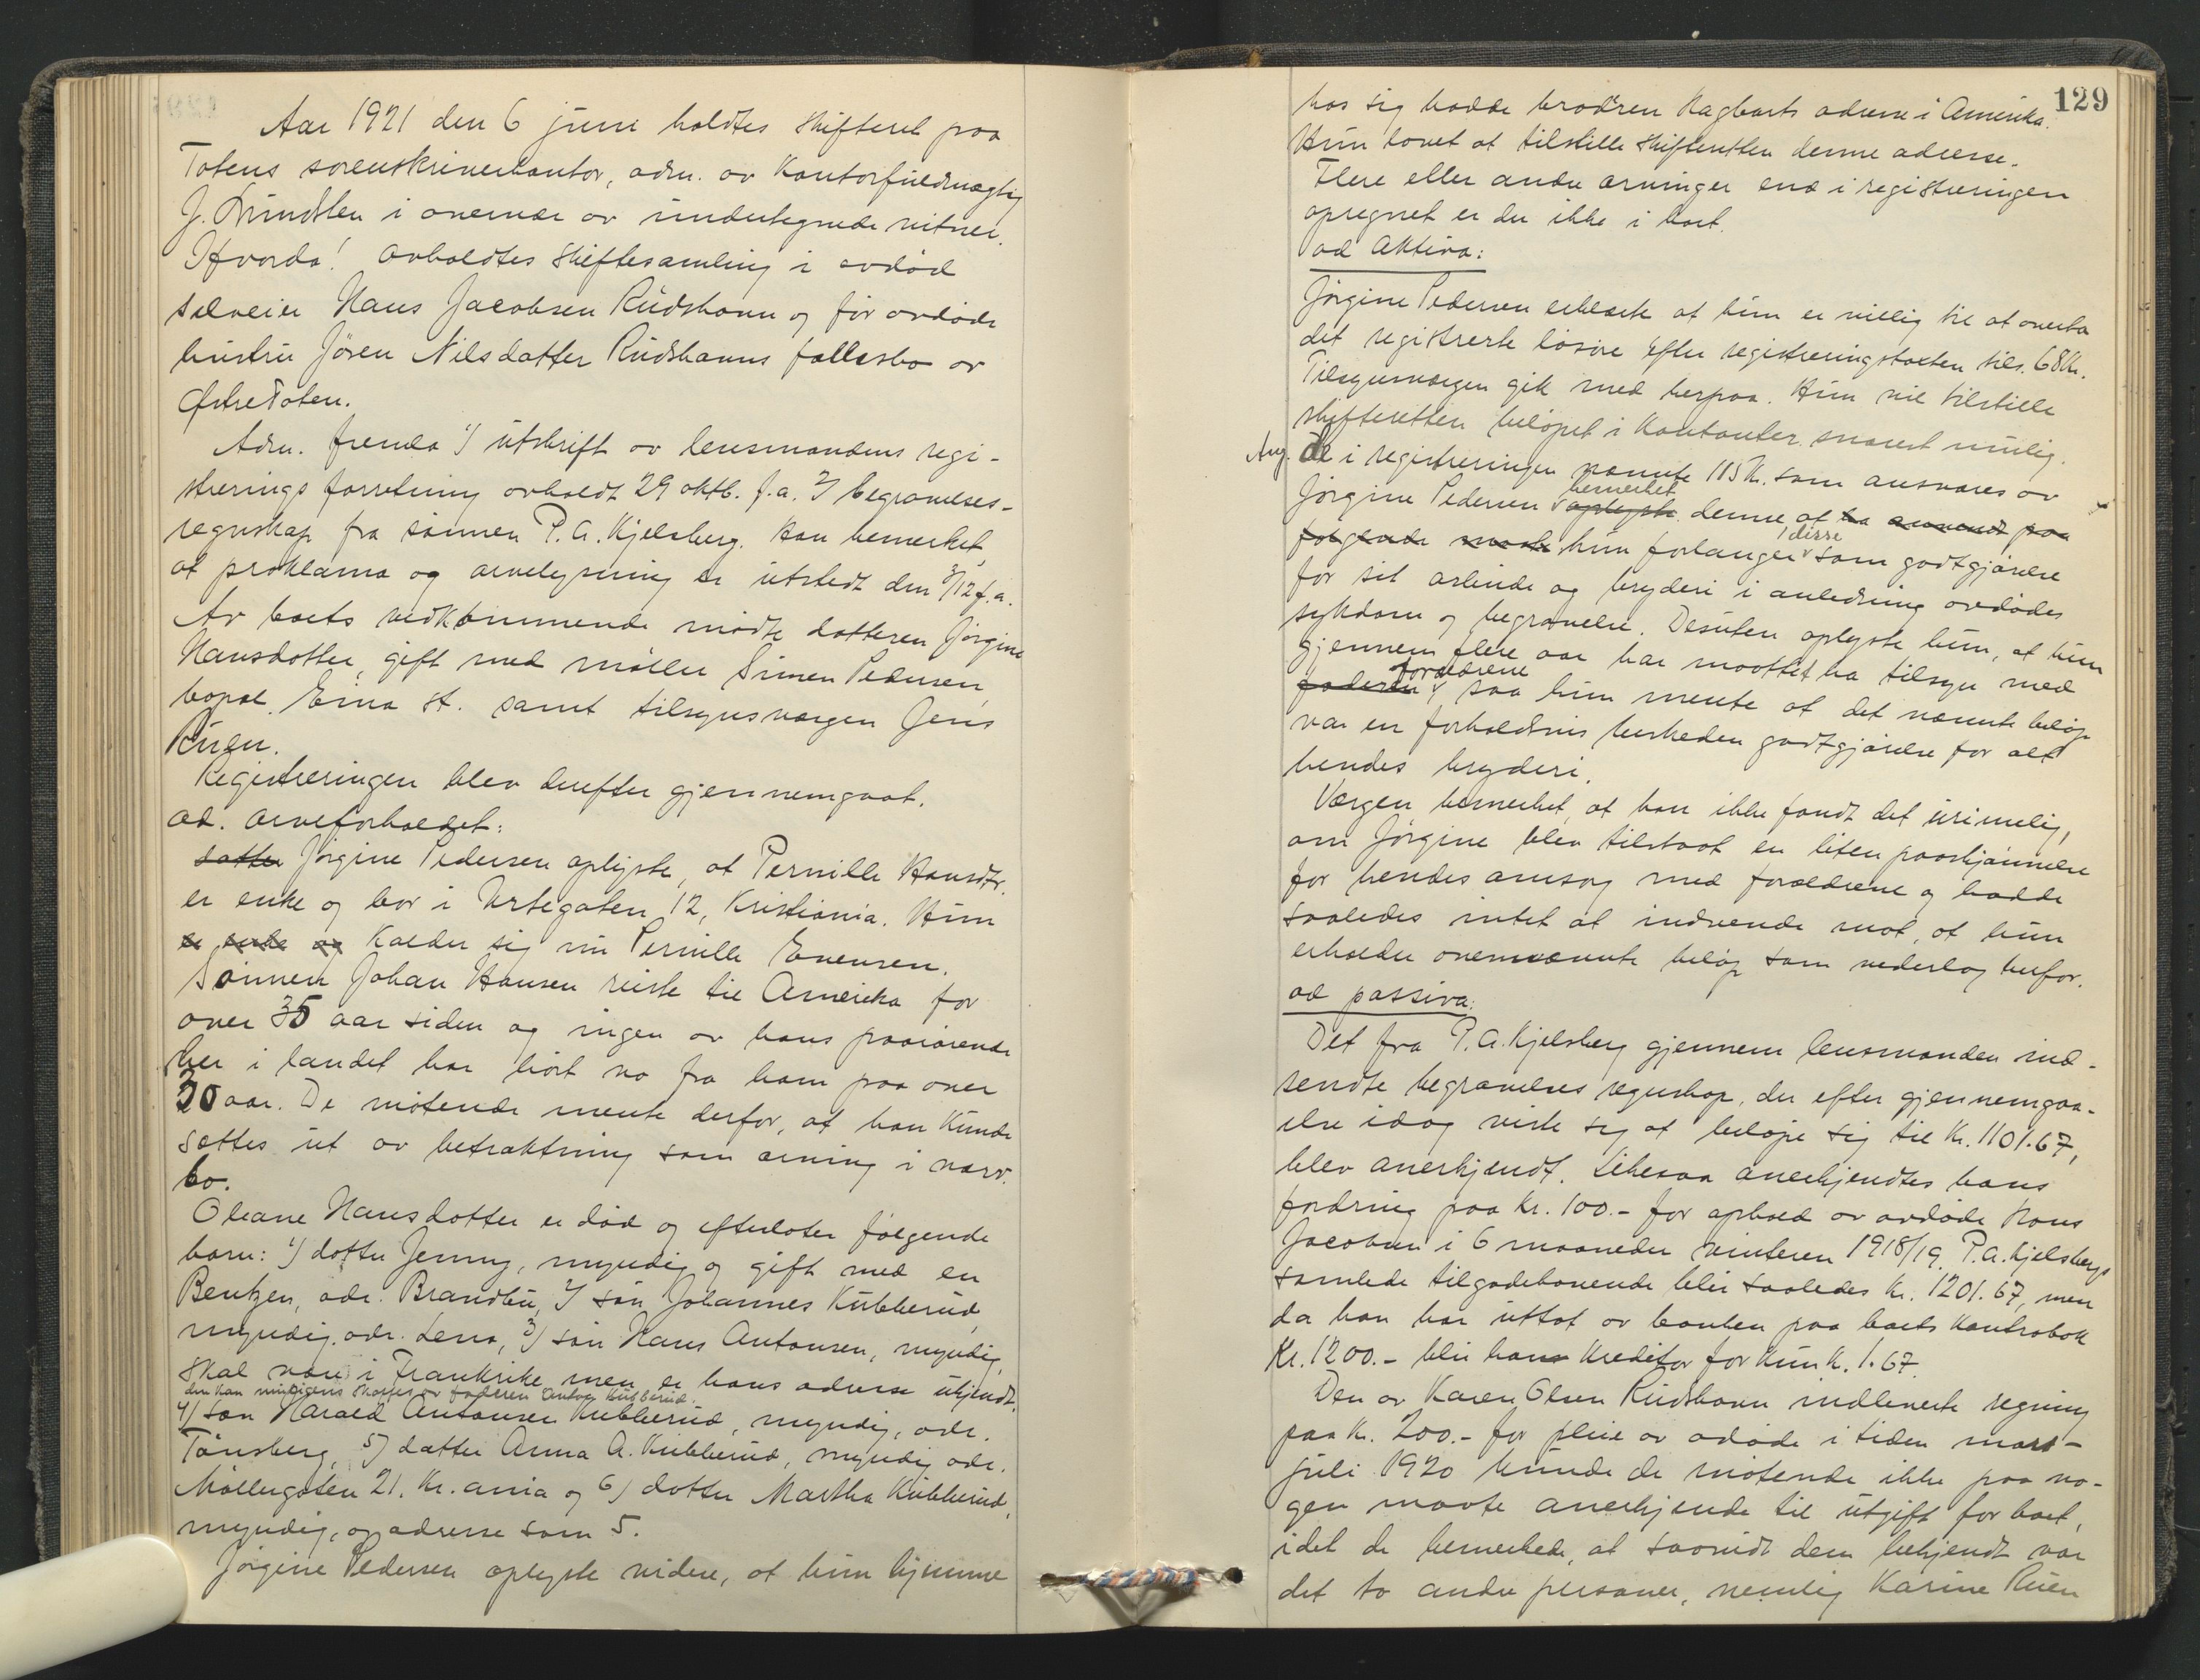 Aar 1921 den 6 juni holdtes skifteret paa
Totens sorenskriverkontor, adm. av kontorfuldmægtig
J. Lundsten i overvær av undertegnede vitner.
Hvorda! avholdtes skiftesamling i avdød
selveier Hans Jacobsen Rudshavn og før avdøde
hustru Jøren Nilsdatter Rudshavns fællesbo av
Østre Toten.
Adm. fremla 1) utskrift av lensmandens regi-
strerings forretning avholdt 29 oktb. f.a. 2) begravelses-
regnskap fra sønnen P. A. Kjelsberg. Han bemerket,
at proklama og arvelysning er utstedt den 3/12 f.a.
Av boets vedkommende møtte datteren Jørgine
Hansdatter, gift med møller Simen Pedersen,
bopæl Eina st. samt tilsynsværgen Jens
Ruen.
Registreringen blev derefter gjennemgaat.
ad. arveforholdet:
datter Jørgine Pedersen oplyste, at Pernille Hansdtr.
er enke og bor i Urtegaten 12, Kristiania. Hun
er enke og kalder sig nu Pernille Evensen.
Sønnen Johan Hansen reiste til Amerika for
over 35 aar siden og ingen av hans paarørende
her i landet har hørt no fra ham paa over
30 aar. De møtende mente derfor, at han kunde
sættes ut av betraktning som arving i nærv.
bo.
Oleane Hansdatter er død og efterlater følgende
barn: 1) datter Jenny, myndig og gift med en
Bentzen, adr. Brandbu, 2) søn Johannes Kubberud,
myndig, adr. Lena, 3) søn Hans Antonsen, myndig,
skal være i Frankrike men er hans adresse ukjendt.
den kan muligens skaffes av faderen Anton Kubberud.
4) søn Harald Antonsen Kubberud, myndig, adr.
Tønsberg, 5) datter Anna A. Kubberud, myndig adr.
Møllergaten 21, Kr.ania og 6) datter Martha Kubberud,
myndig, og adresse som 5.
Jørgine Pedersen oplyste videre, at hun hjemme
129
hos sig hadde brodren Hagbarts adresse i Amerika.
Hun lovet at tilstille skifteretten denne adresse.
Flere eller andre arvinger end i registreringen
opregnet er der ikke i boet.
ad Aktiva:
Jørgine Pedersen erklærte at hun er villig til at overta
det registrerte løsøre efter registreringstaksten tils. 68 kr.
Tilsynsværgen gik med herpaa. Hun vil tilstille
skifteretten beløpet i kontanter snarest mulig.
Ang. de i registreringen nævnte 115 kr. som ansvares av
Jørgine Pedersen oplyste bemerket denne, at ha anvendt paa
følgende maate hun forlanger disse som godtgjørelse
for sit arbeide og bryderi i anledning avdødes
sykdom og begravelse. Desuten oplyste hun, at hun
gjennem flere aar har maattet ha tilsyn med
faderen forældrene saa hun mente at det nævnte beløp
var en forholdsvis beskeden godtgjørelse for alt
hendes bryderi.
Værgen bemerket, at han ikke fandt det urimelig,
om Jørgine blev tilstaat en liten paaskjønnelse
for hendes omsorg med forældrene og hadde
saaledes intet at indvende mot, at hun
erholder ovennævnte beløp som vederlag herfor.
ad passiva:
Det fra P. A. Kjelsberg gjennem lensmanden ind-
sendte begravelses regnskap, der efter gjennemgaa-
else idag viste sig at beløpe sig til kr. 1101.67,
blev anerkjendt. Likesaa anerkjendtes hans
fordring paa kr. 100.- for ophold av avdøde Hans
Jacobsen i 6 maaneder vinteren 1918/19. P.A. Kjelsbergs
samlede tilgodehavende blir saaledes kr. 1201.67, men
da han har uttat av banken paa boets kontrabok
Kr. 1200.- blir hans kreditor for kun k. 1.67.
Den av Karen Olsen Rudshavn indleverte regning
paa kr. 200.- for pleie av adøde i tiden mars-
juli 1920 kunde de møtende ikke paa no-
gen maate anerkjende til utgift for boet,
idet de bemerkede, at saavidt dem bekjendt var
det to andre personer, nemlig Karine Ruen